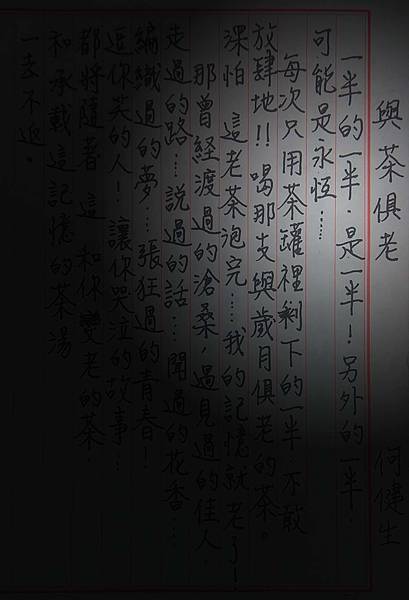 與茶俱老 何健生
一半的一半.是一半!另外的一半.
可能是永恆……
每次只用茶罐裡剩下的一半 不敢
放肆地!!喝那支與歲月俱老的茶。
深怕 這老茶泡完……我的記憶就老了!
那曾經渡過的滄桑,遇見過的佳人.
走過的路……說過的話……聞過的花香……
編織過的夢…張狂過的青春!
逗你笑的人!讓你哭泣的故事…
都將隨著 這 和你變老的茶.
和承載這記憶的茶湯
一去不返。